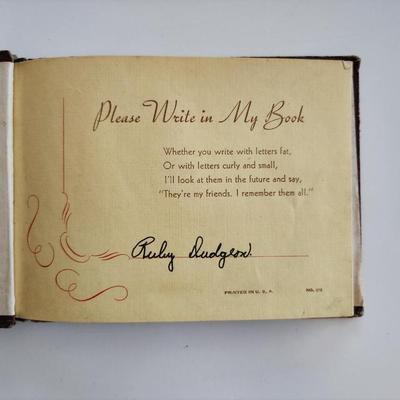 Please Write in My Book
Whether you write with letters fat,
Or with letters curly and small,
I'll look at them in the future and say,
"They're my friends. I remember them all."
Ruby Dudgeon
PRINTED IN U. S. A.
NO.